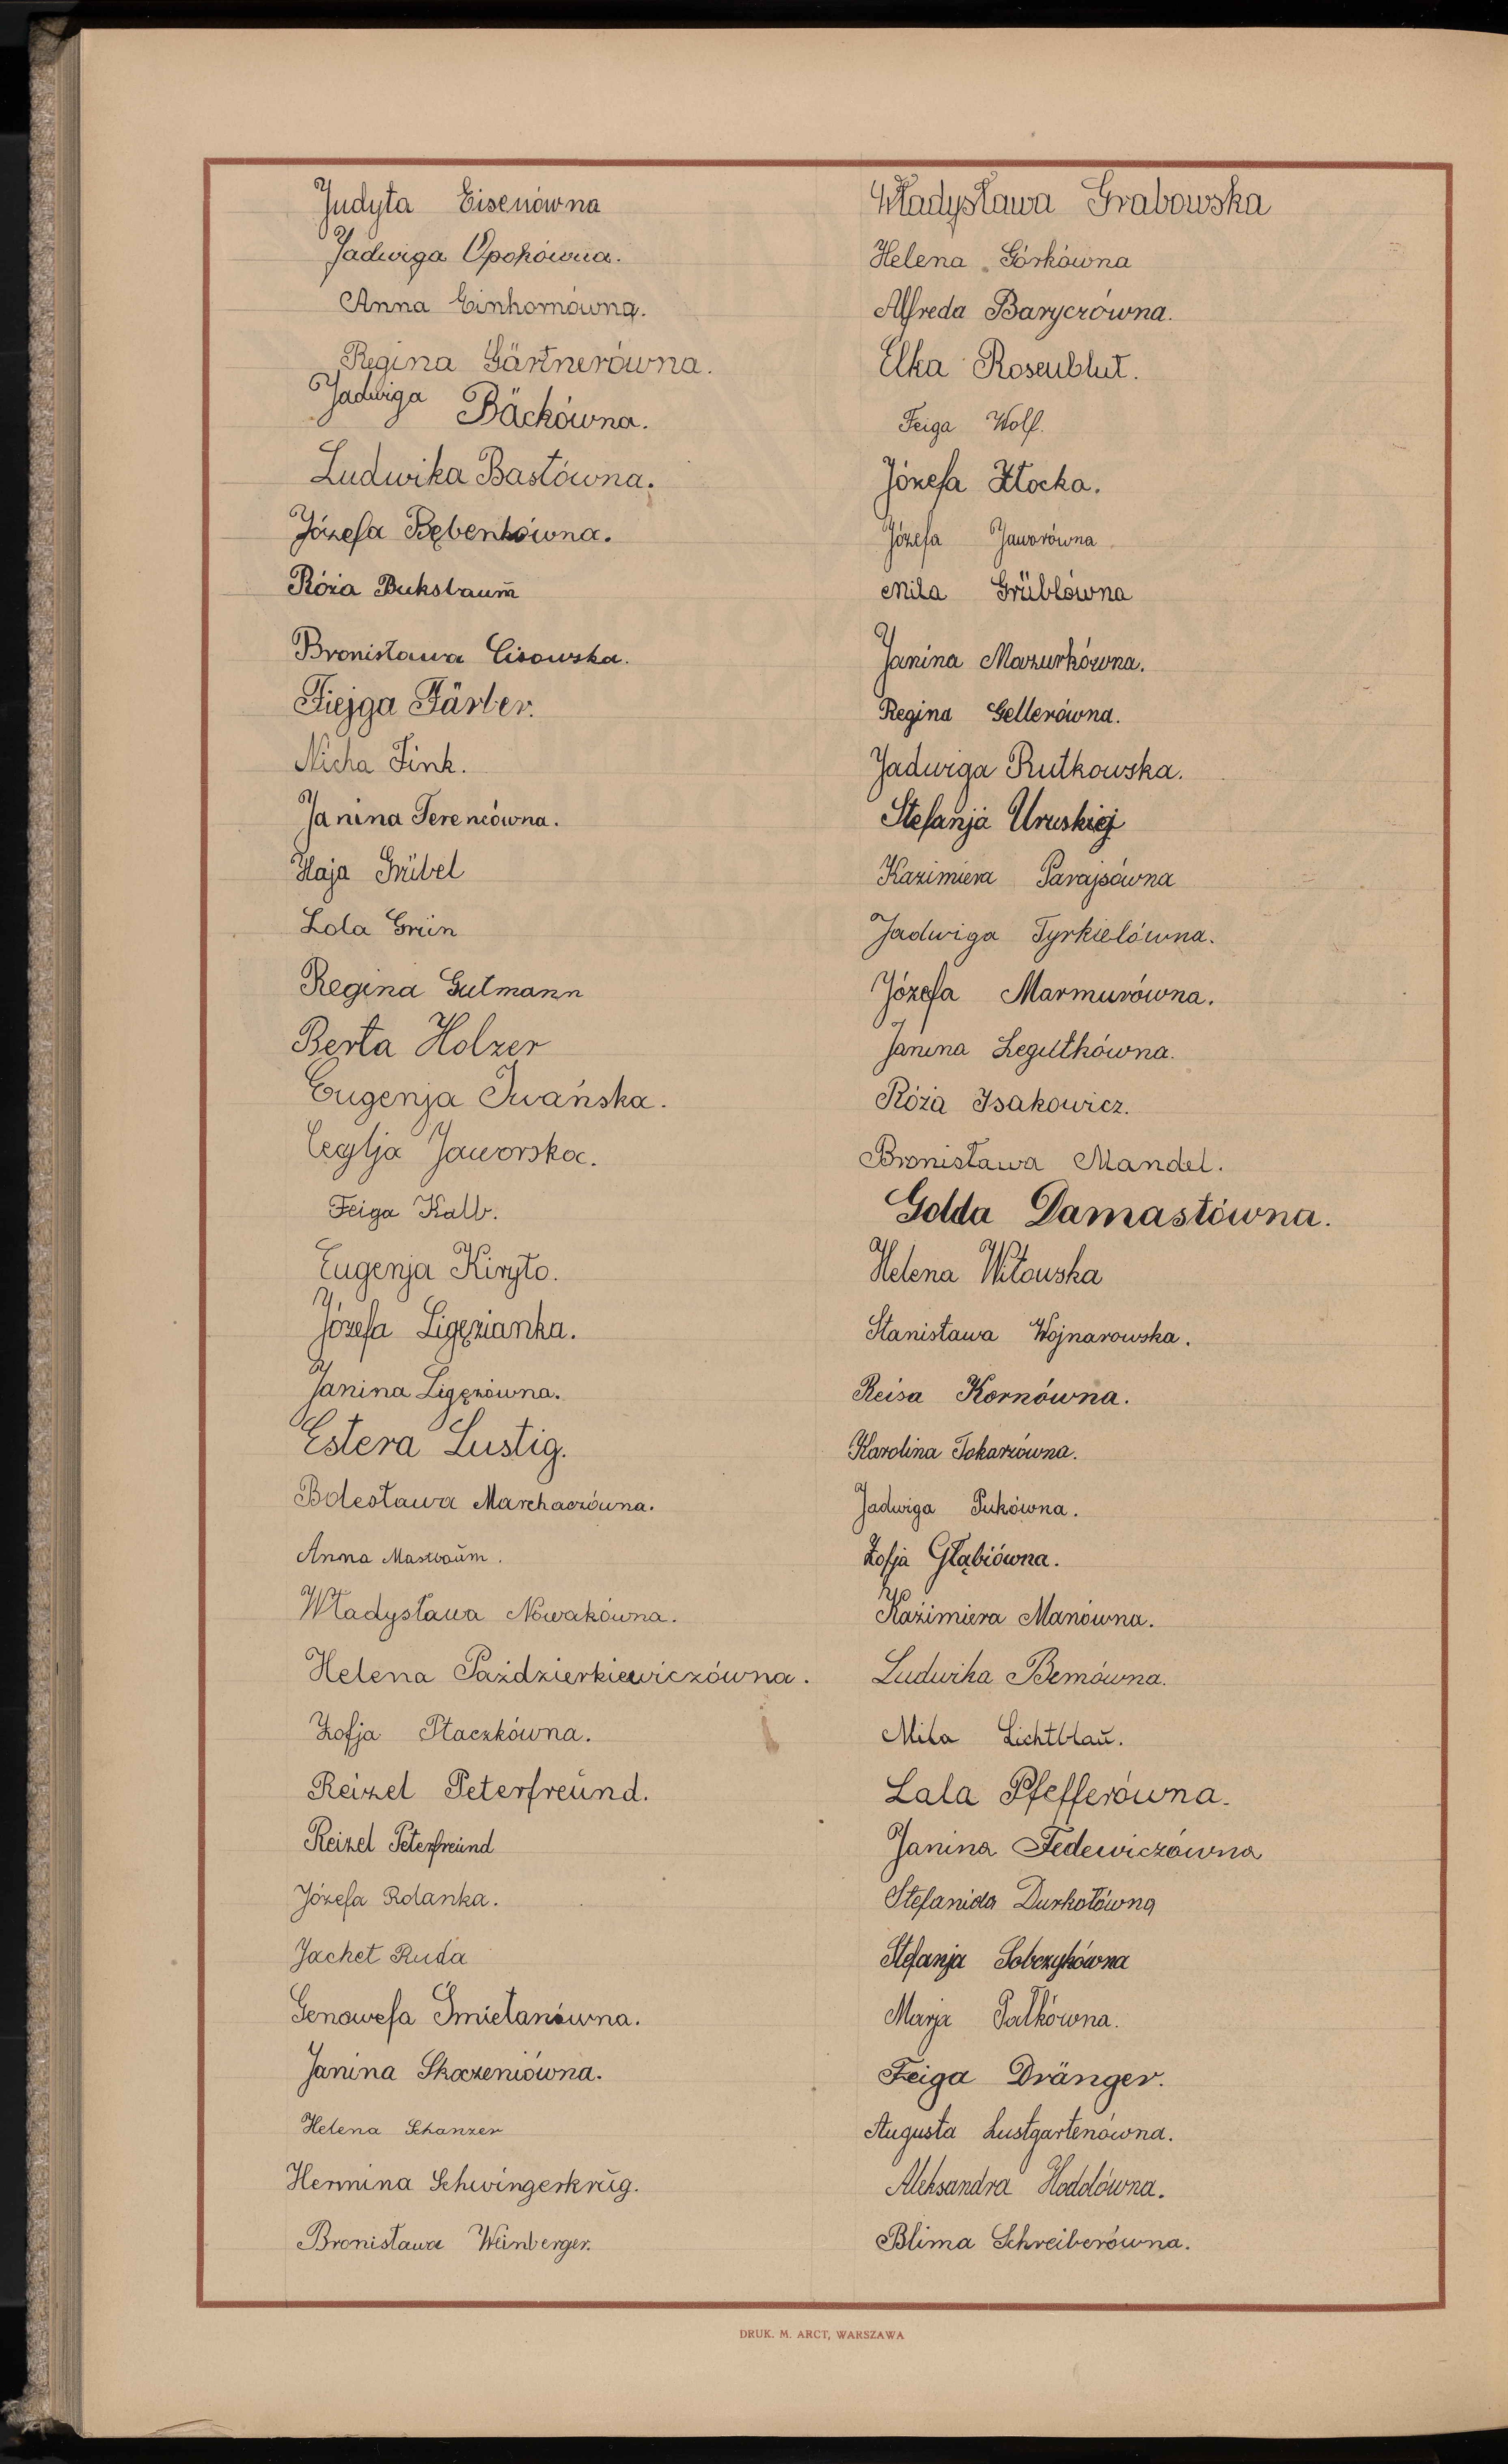 Judyta Eisenówna
Jadwiga Opokówna.
Anna Einhornówna.
Regina Gärtnerówna.
Jadwiga Bäckówna.
Ludwika Bastówna.
Józefa Bębenkówna.
Róża Buksbaum
Bronisława Cisowska.
Fiejga Färber.
Nicha Fink.
Janina Ferencówna.
Haja Grübel
Lola Grün
Regina Gutmann
Berta Holzer
Eugenja Iwańska.
Cecylja Jaworska.
Feiga Kalb.
Eugenja Kiryło.
Józefa Ligęzianka.
Janina Ligęzówna.
Estera Lustig.
Bolesława Marchaczówna.
Anna Mastbaum.
Władysława Nowakówna.
Helena Paździerkiewiczówna.
Zofja Płaczkówna.
Reizel Peterfreund.
Reizel Peterfreund
Józefa Rolanka.
Jachet Ruda
Genowefa Śmietanówna.
Janina Skoczeniówna.
Helena Schanzer
Hermina Schwingerkrug.
Bronisława Weinberger.
Władysława Grabowska
Helena Górkówna
Alfreda Baryczówna.
Elka Rosenblut.
Feiga Wolf.
Józefa Złocka.
Józefa Jaworówna
Mila Grüblówna
Janina Mazurkówna.
Regina Gellerówna.
Jadwiga Rutkowska.
Stefanja Uruskiej
Kazimiera Parajsówna
Jadwiga Tyrkielówna.
Józefa Marmurówna.
Janina Legutkówna.
Róża Isakowicz.
Bronisława Mandel.
Golda Damastówna.
Helena Witowska
Stanisława Wojnarowska.
Reisa Kornówna.
Karolina Tokarzówna.
Jadwiga Pukówna.
Zofja Głąbiówna.
Kazimiera Manówna.
Ludwika Bemówna.
Mila Lichtblau.
Lala Pfefferówna.
Janina Fedewiczówna
Stefanida Durkotówna
Stefanja Sobczykówna
Marja Pałkówna.
Feiga Dränger.
Augusta Lustgartenówna.
Aleksandra Hodolówna.
Blima Schreiberówna.
DRUK. M. ARCT, WARSZAWA